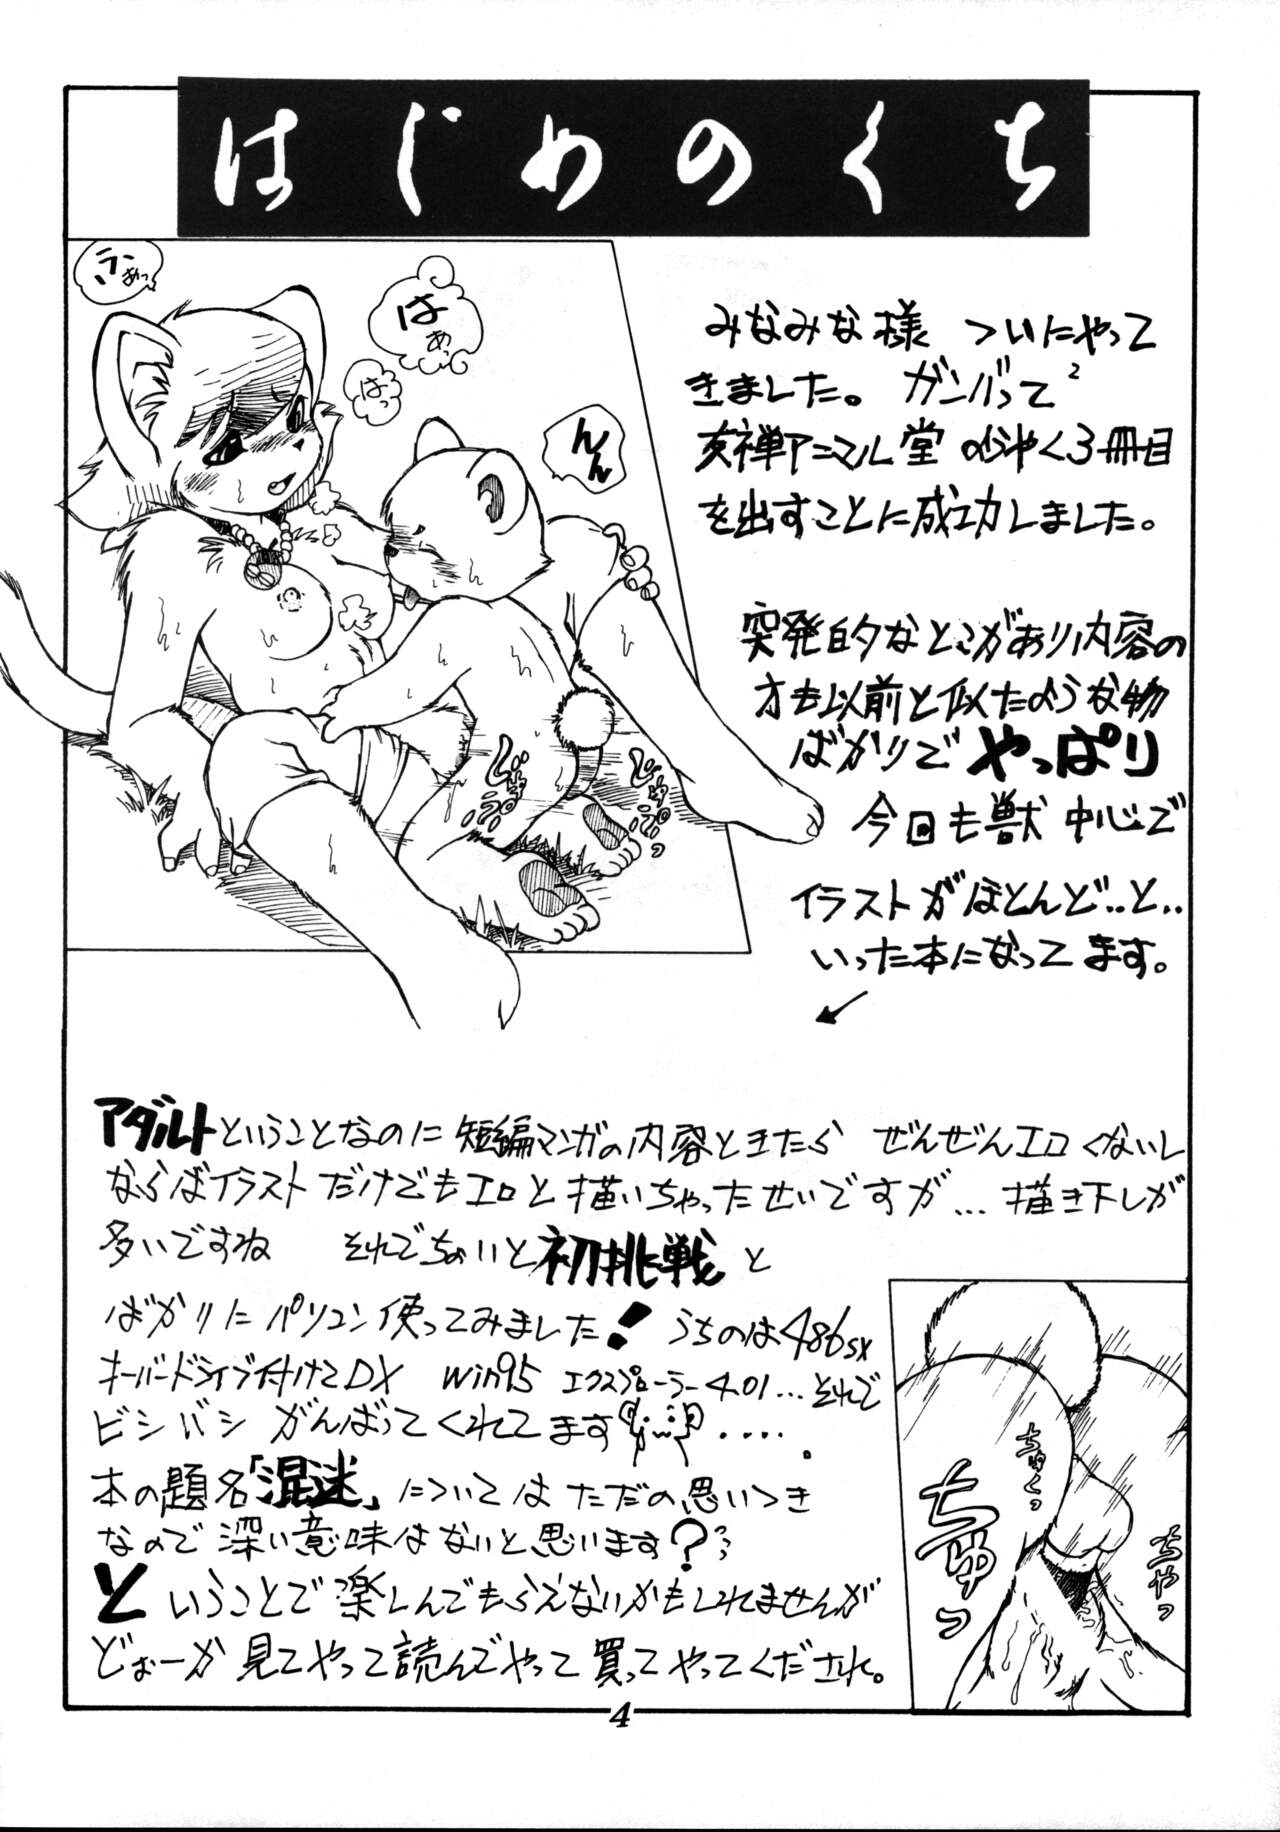 はじめのくち
みなみな様 ついにやって
きました。ガンバって2
女神アニマル堂 ようやく3冊目
を出すことに成功しました。
突発的なとこがあり内容の
方も以前と似たような物
ばかりで やっぱり
今回も獣中心で
イラストがほとんど‥と‥
いった本になってます。
はあっ
はっ
んん
アダルトということなのに 短編マンガの内容ときたら ぜんぜんエロくないし
ならばイラストだけでもエロと描いちゃったせいですが…描き下しが
多いですね それでちょいと初挑戦と
ばかりにパソコン使ってみました! うちのは486sx
オーバードライブ付けてDX win95 エクスプローラー4.01…それで
ビシバシ がんばってくれてます ‥‥。
本の題名「混迷」についてはただの思いつき
なので深い意味はないと思います?
ということで楽しんでもらえないかもしれませんが
どぉーか 見てやって読んでやって買ってやってくだされ。
ちゅくっ
ちゅっ
ちゃっ
4